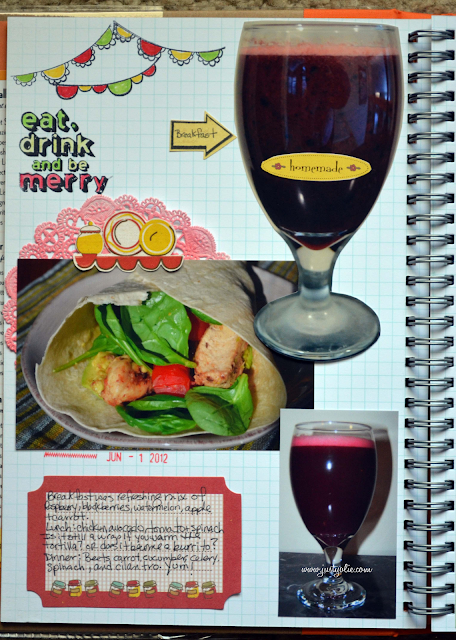 eat,
drink
and be
merry
Breakfast
homemade
JUN - 1 2012
Breakfast was refreshing mix of
raspberry, blackberries, watermelon, apple
+ carrot.
Lunch: chicken, avocado, tomato + spinach
Is it still a wrap if you warm the
tortilla? or does it become a burrito?
Dinner: Beets, carrot, cucumber, celery,
spinach, and cilantro. yum!
www.justjolie.com